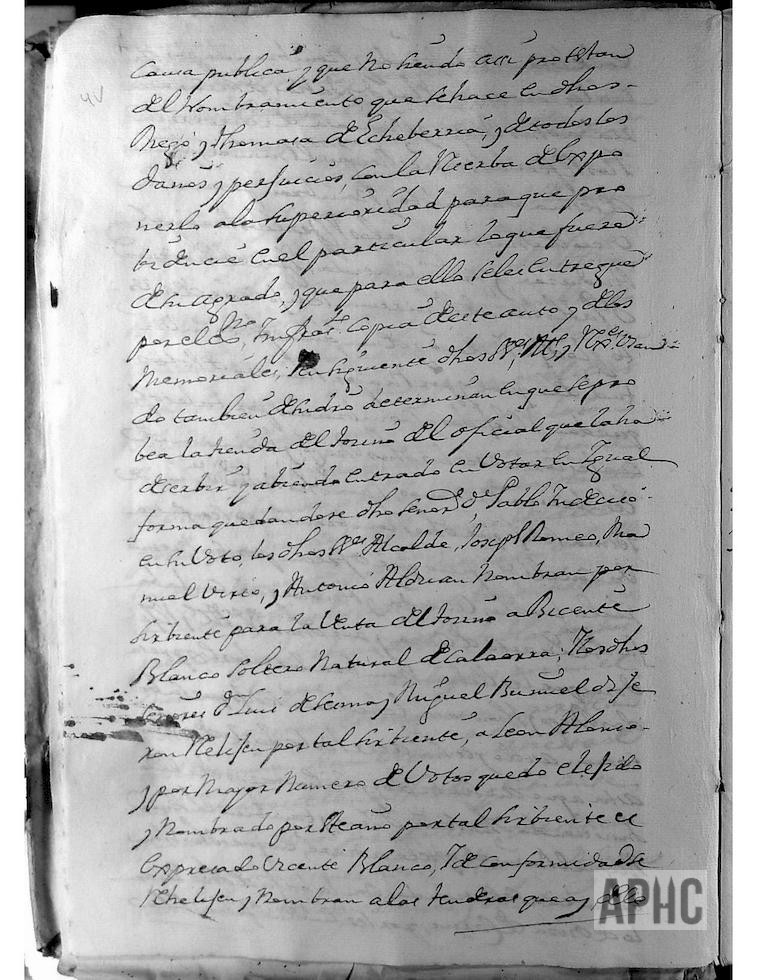 4V
Causa publica, y que no siendo assi protestan
del Nombramiento que se hace en dhos
Rego y Thomasa de Echeberria, y de todos los
daños y perjuicios, con la Reserba de Expo
nerlo a la superioridad para que pro
bidencie en el particular lo que fuere
de su agrado, y que para ello se les entregue
por el copia de este auto y de los
Memoriales, en siguiente dhos
do tambien determinan en que se pro
bea la tienda del tozino del oficial que la ha
de serbir y abiendo entrado en Votar en Igual
forma quedandose dho Señor Dn Pablo Indeciso
en su Voto, los dhos Sres Alcalde, Joseph Romeo, Ma
nuel Virto, y Antonio Aldrian nombran por
sirbiente para la Venta del tozino a Bicente
Blanco Soltero Natural de Calaorra; Y los dhos
Señores Dn Luis de y Miguel Buñuel dije
ron Elelijen por tal sirbiente, a Leon Alonso
y por Mayor Numero de Votos quedo elejido
y Nombrado por este año por tal sirbiente el
Expresado Vicente Blanco, Y de conformidad se
elijen y Nombran a las tenderas que ay
APHC